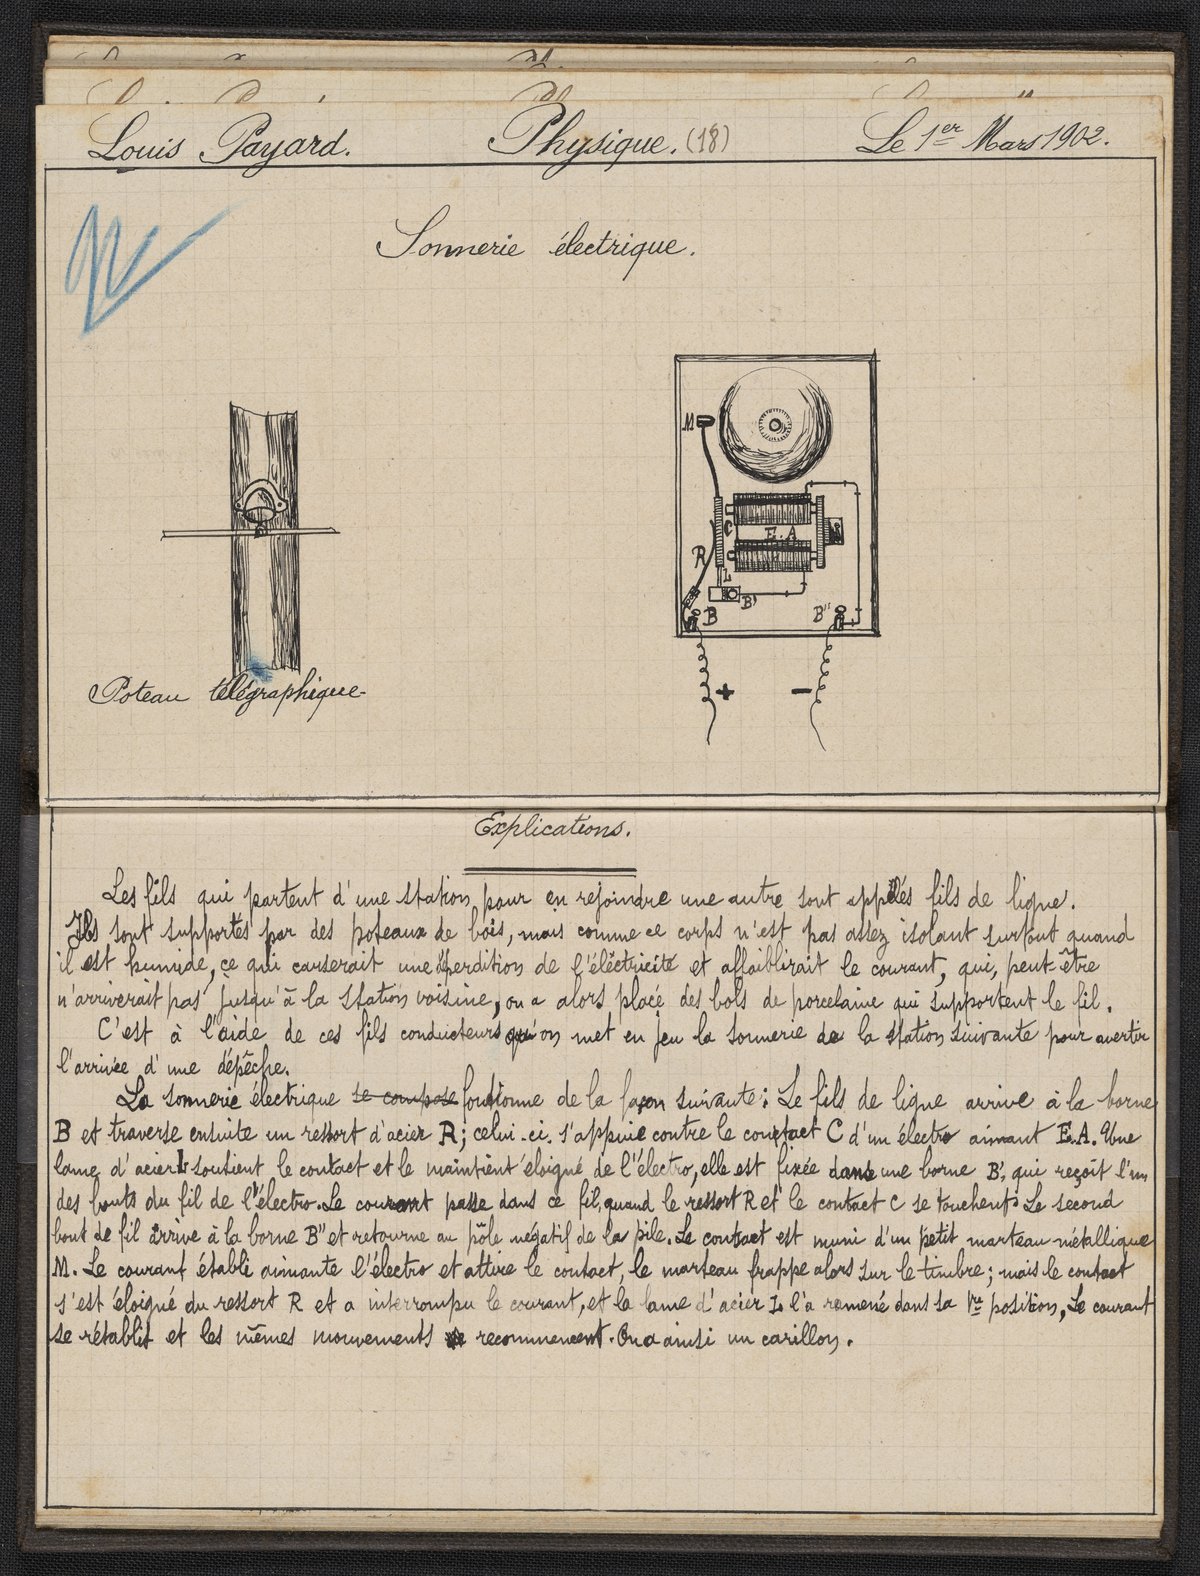 Louis Payard. Physique. (18) Le 1er Mars 1902.
Sonnerie électrique.
M
C
E.A
R
L
B'
B
B"
+ −
Poteau télégraphique
Explications.
Les fils qui partent d'une station pour en rejoindre une autre sont appelés fils de ligne.
Ils sont supportés par des poteaux de bois, mais comme ce corps n'est pas assez isolant surtout quand
il est humide, ce qui causerait une perdition de l'éléctricité et affaiblirait le courant, qui, peut-être
n'arriverait pas jusqu'à la station voisine, on a alors placé des bols de porcelaine qui supportent le fil.
C'est à l'aide de ces fils conducteurs qu'on met en jeu la sonnerie de la station suivante pour avertir
l'arrivée d'une dépêche.
La sonnerie électrique se compose fonctionne de la façon suivante: Le fils de ligne arrive à la borne
B et traverse ensuite un ressort d'acier R; celui-ci s'appuie contre le contact C d'un électro aimant E.A. Une
lame d'acier L soutient le contact et le maintient éloigné de l'électro, elle est fixée dans une borne B', qui reçoit l'un
des bouts du fil de l'électro. Le courant passe dans ce fil, quand le ressort R et le contact C se touchent. Le second
bout de fil arrive à la borne B" et retourne au pôle négatif de la pile. Le contact est muni d'un petit marteau métallique
M. Le courant établi aimante l'électro et attire le contact, le marteau frappe alors sur le timbre; mais le contact
s'est éloigné du ressort R et a interrompu le courant, et la lame d'acier L l'a ramené dans sa 1re position, Le courant
se rétablit et les mêmes mouvements recommencent. On a ainsi un carillon.